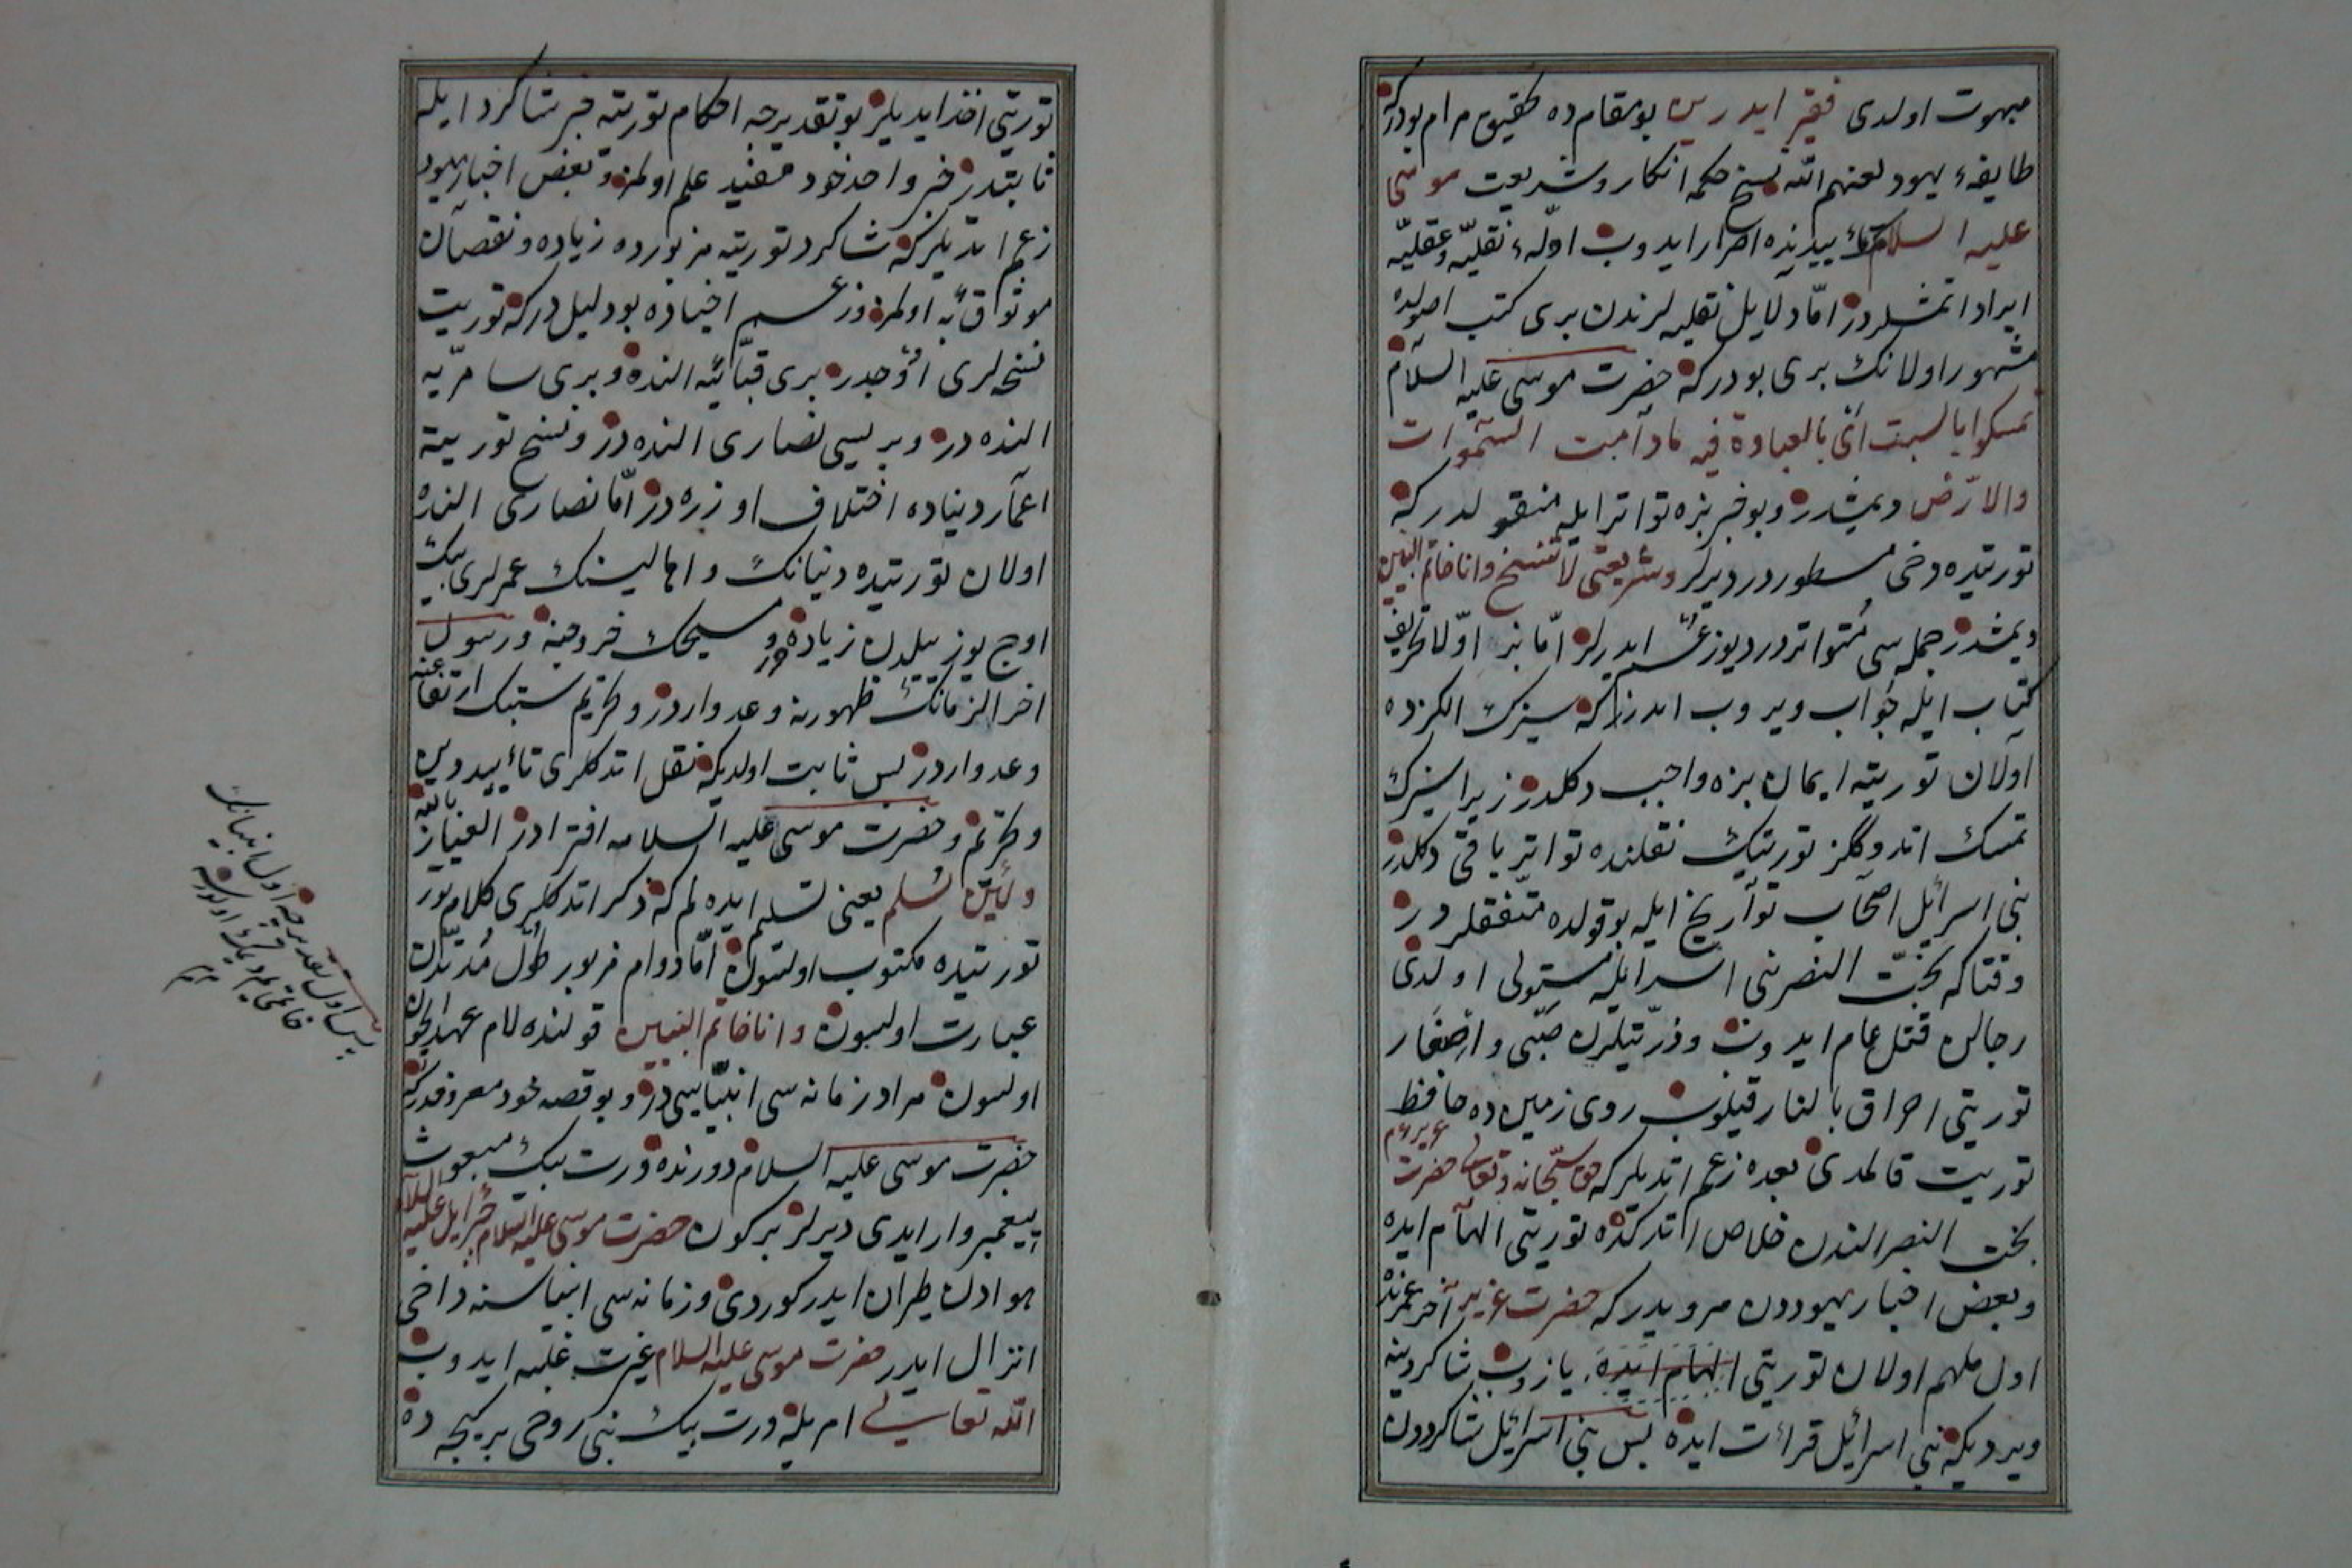 مبهوت اولدی فقیر ایدر بو مقام ده تحقیق مرام بودركه
طایفهٔ یهود لعنهم الله نسخ حکمه انکار و شریعت موسی
علیه السلام تأییدینه اصرار ایدوب ادلهٔ نقلیّه و عقلیّه
ایراد اتمشلردر امّا دلایل نقلیه لرندن بری کتب اصولده
مشهور اولانك بری بودركه حضرت موسی علیه السلام
تمسکوا بالسبت ای بالعبادة فیه مادامت السّموات
والارض دیمشدر و بو خبر بزه تواتر ایله منقولدركه
توریتده دخی مسطوردر دیرلر و شریعتی لا تنسخ وانا خاتم النبیین
دیمشدر جمله سی متواتردر دیو زعم ایدرلر امّا بز اوّلا تحریف
کتاب ایله جواب ویروب ایدرز که سزك الکزده
اولان توریته ایمان بزه واجب دکلدر زیرا سزك
تمسك اتدوگکز توریتك نقلنده تواتر باقی دکلدر
بنی اسرائیل اصحاب تواریخ ایله بو قولده متفقلردر
وقتاکه بخت النصر بنی اسرائیله مستولی اولدی
رجالن قتل عام ایدوب و ذرّیتلرن صبّی و اصغار
توریتی احراق بالنار قیلوب روی زمین ده حافظ
توریت قالمدی بعده زعم اتدیلركه حق سبحانه و تعالی حضرت عزیره
بخت النصر الندن خلاص اتدکده توریتی الهام ایده
و بعض احبار یهوددن مرویدركه حضرت عزیر آخر عمرنده
اول ملهم اولان توریتی الهام ایده یازوب شاکردینه
ویردیکه بنی اسرائیل قرائت ایده پس بنی اسرائیل شاکرددن
توریتی اخذ ایدیلر بو تقدیرجه احکام توریته خبر شاکرد ایله
ثابتدر خبر واحد خود مفید علم اولمز و بعض احبار یهود
زعم اتدیلركه شاکرد توریته مزبورده زیاده و نقصان
موثوق به اولمز و زعم احبارده بو دلیلدركه توریت
نسخه لری اوچدر بری قبائیه النده و بری سامریّه
النده در و بریسی نصاری النده در و نسخ توریة
اعمار دنیاده اختلاف اوزره در امّا نصاری النده
اولان توریتده دنیانك و اهالیسنك عمرلری بیك
اوچ یوز ییلدن زیاده در و مسیحك خروجنه و رسول
اخر الزمانك ظهورنه وعد واردر و تحریم سبتك ارتفاعنه
وعد واردر پس ثابت اولدیکه نقل اتدکلری تأیید دین
و تحریم و حضرت موسی علیه السلامه افترادر العیاذ بالله
ولئن سلم یعنی تسلیم ایده لم که ذکر اتدکلری کلام بو
توریتده مکتوب اولسون امّا دوام مزبور طول مدّتدن
عبارت اولسون وانا خاتم النبیین قولنده لام عهد ایچون
اولسون مراد زمانه سی انبیاسی در و بو قصه خود معروفدركه
حضرت موسی علیه السلام دورنده درت بیك مبعوث
پیغمبر وار ایدی دیرلر بر کون حضرت موسی علیه السلام جبرایل علیه السلام
هوادن طیران ایدر کوردی و زمانه سی انبیاسنه داخی
انزال ایدر حضرت موسی علیه السلام غیرت غلبه ایدوب
الله تعالی امریله درت بیك نبی روحی بر کیجه ده
پس اول تقدیرجه اول انبیانك
خاتمی یم دیمك اولور